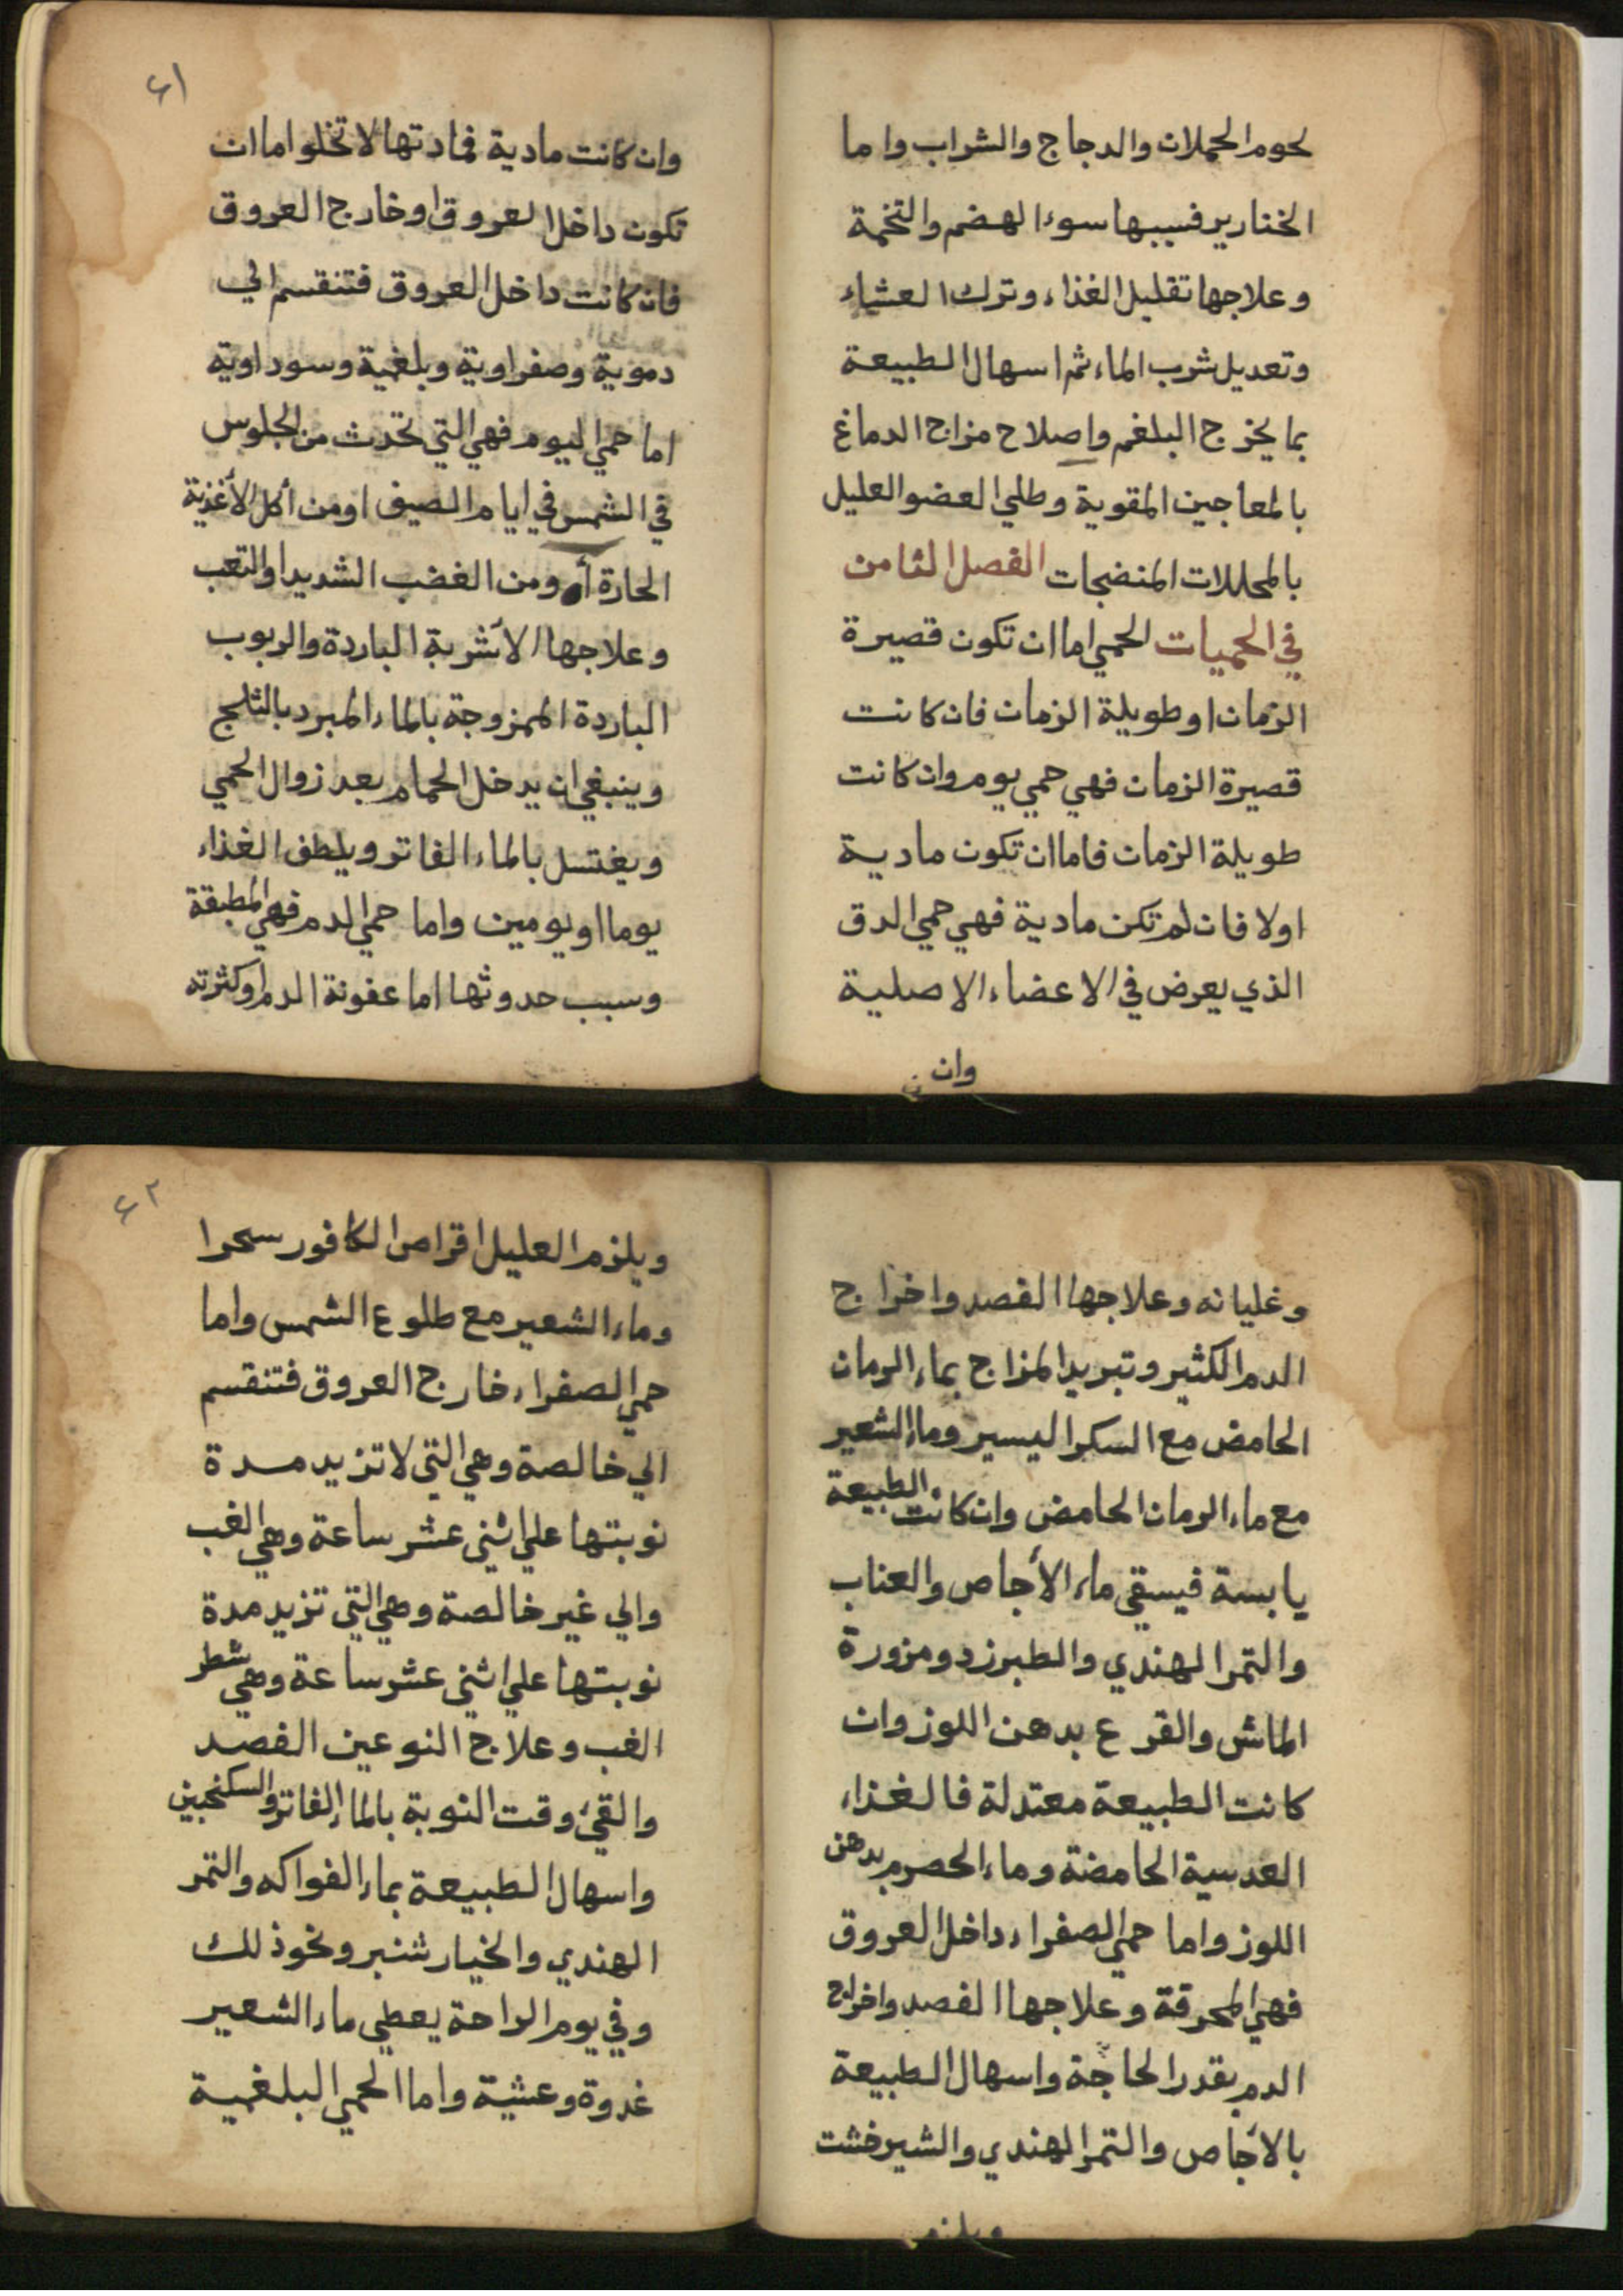 لحوم الحملان والدجاج والشراب واما
الخنازير فسببها سوء الهضم والتخمة
وعلاجها تقليل الغذاء وترك العشاء
وتعديل شرب الماء ثم اسهال الطبيعة
بما يخرج البلغم واصلاح مزاج الدماغ
بالمعاجين المقوية وطلي العضو العليل
بالمحللات المنضجات الفصل الثامن
في الحميات الحمي اما ان تكون قصيرة
الزمان او طويلة الزمان فان كانت
قصيرة الزمان فهي حمي يوم وان كانت
طويلة الزمان فاما ان تكون مادية
اولا فان لم تكن مادية فهي حمي الدق
الذي يعرض في الاعضاء الاصلية
وان
٤١
وان كانت مادية فمادتها لا تخلو اما ان
تكون داخل العروق او خارج العروق
فان كانت داخل العروق فتنقسم الي
دموية وصفراوية وبلغمية وسوداوية
اما حمي اليوم فهي التي تحدث من الجلوس
في الشمس في ايام الصيف او من أكل الأغذية
الحارة أو ومن الغضب الشديد او التعب
وعلاجها الأشربة الباردة والربوب
الباردة الممزوجة بالماء المبرد بالثلج
وينبغي ان يدخل الحمام بعد زوال الحمي
ويغتسل بالماء الفاتر ويلطف الغذاء
يوما او يومين واما حمي الدم فهي المطبقة
وسبب حدوثها اما عفونة الدم او كثرته
وغليانه وعلاجها الفصد واخراج
الدم الكثير وتبريد المزاج بماء الرمان
الحامض مع السكر اليسير وماء الشعير
مع ماء الرمان الحامض وان كانت الطبيعة
يابسة فيسقي ماء الأجاص والعناب
والتمر الهندي والطبرزد ومزورة
الماش والقرع بدهن اللوز وان
كانت الطبيعة معتدلة فالغذاء
العدسية الحامضة وماء الحصرم بدهن
اللوز واما حمي الصفراء داخل العروق
فهي المحرقة وعلاجها الفصد واخراج
الدم بقدر الحاجة واسهال الطبيعة
بالأجاص والتمر الهندي والشيرخشت
ويلزم
٤٢
ويلزم العليل اقراص الكافور سحرا
وماء الشعير مع طلوع الشمس واما
حمي الصفراء خارج العروق فتنقسم
الي خالصة وهي التي لا تزيد مدة
نوبتها علي اثني عشر ساعة وهي الغب
والي غير خالصة وهي التي تزيد مدة
نوبتها علي اثني عشر ساعة وهي شطر
الغب وعلاج النوعين الفصد
والقيء وقت النوبة بالماء الفاتر والسكنجبين
واسهال الطبيعة بماء الفواكه والتمر
الهندي والخيار شنبر ونحو ذلك
وفي يوم الراحة يعطي ماء الشعير
غدوة وعشية واما الحمي البلغمية